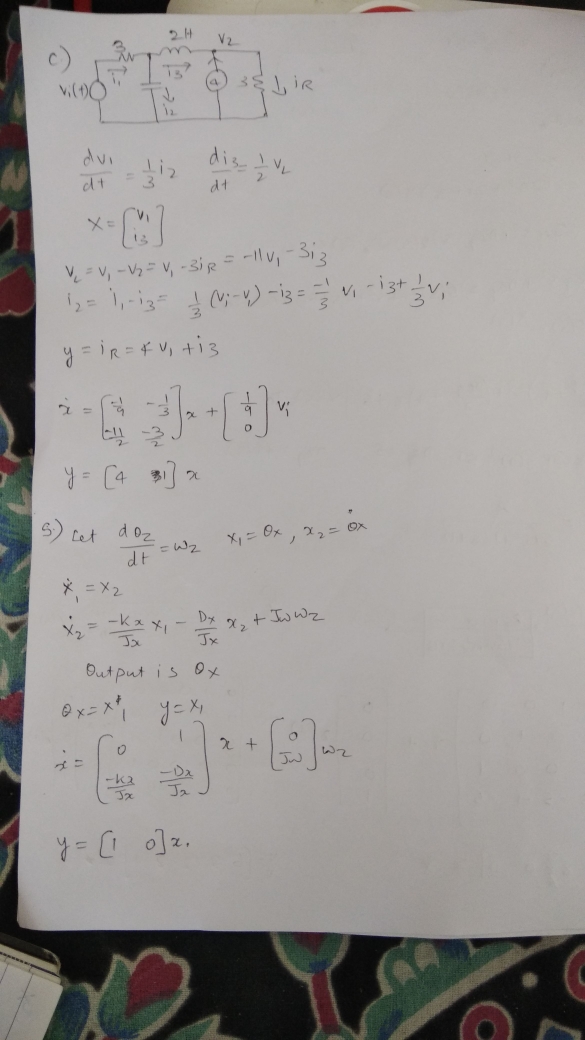 c.)
3 2H V2
Vi(t) i1 i3 4 3 iR
i2
dv1/dt = 1/3 i2   di3/dt = 1/2 VL
X = [V1 i3]
VL = V1 - V2 = V1 - 3iR = -11V1 - 3i3
i2 = i1 - i3 = 1/3 (Vi - V1) - i3 = -1/3 V1 - i3 + 1/3 Vi
y = iR = 4 V1 + i3
ẋ = [-1/9 -1/3; -11/2 -3/2] x + [1/9; 0] Vi
y = [4 1] x
5.) Let dθz/dt = ωz   x1 = θx, x2 = θ̇x
ẋ1 = x2
ẋ2 = -Kx/Jx x1 - Dx/Jx x2 + Jω ωz
Output is θx
θx = x1   y = x1
ẋ = [0 1; -Kx/Jx -Dx/Jx] x + [0; Jω] ωz
y = [1 0] x.